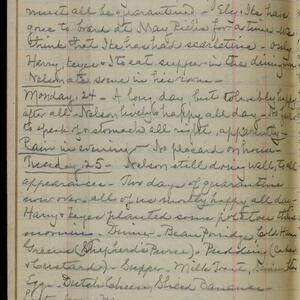 must all be quarantined - I, Ely, Ike have
gone to board at May Rich's for a time - We
think that Ike has had scarletina - Only
Harry, Keyes & I to eat supper in the dining room
Nelson ate some in his room -
Monday, 24 - A long day, but tolerably happy
after all - Nelson lively & happy all day - No
to speak of & stomach all right, apparently -
Rain in evening - No placard on house -
Tuesday, 25 - Nelson still doing well, to all
appearances - Two days of quarantine
now over & all of us mostly happy all day -
Harry & Keyes planted some potatoes this
morning - Dinner - Bean Porridge, Cold Ham
Greens (Shepherd's Purse) - Pudding (Cake
& Custard) - Supper - Milk Toast,
Egg - Dutch Cheese, Sliced Bananas -